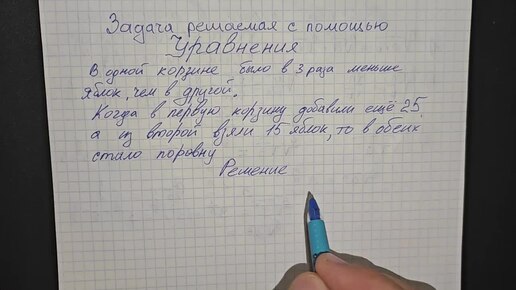 Задача решаемая с помощью
Уравнения
В одной корзине было в 3 раза меньше
яблок, чем в другой.
Когда в первую корзину добавили ещё 25,
а из второй взяли 15 яблок, то в обеих
стало поровну
Решение